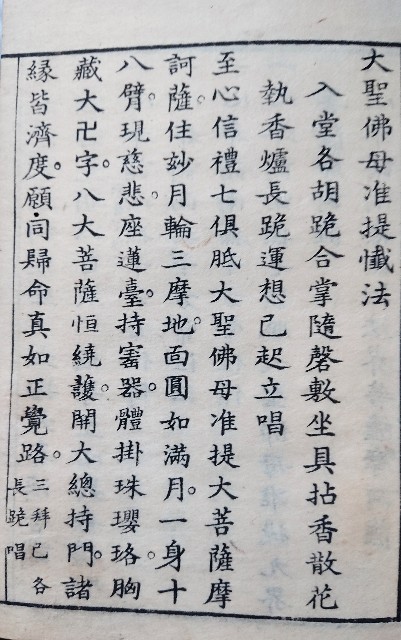 大聖佛母准提懴法
入堂各胡跪合掌隨磬敷坐具拈香散花
執香爐長跪運想已起立唱
至心信禮七俱胝大聖佛母准提大菩薩摩
訶薩。住妙月輪三摩地。面圓如滿月。一身十
八臂。現慈悲。座蓮臺。持寳器。體掛珠瓔珞。胸
藏大卍字。八大菩薩恒繞護。開大總持門。諸
緣皆濟度。願同歸命真如正覺路。三拜已各
長跪唱